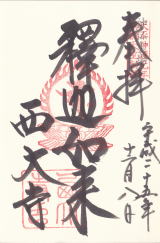 奉拝
平成二十五年
十二月八日
釋迦如来
西大寺